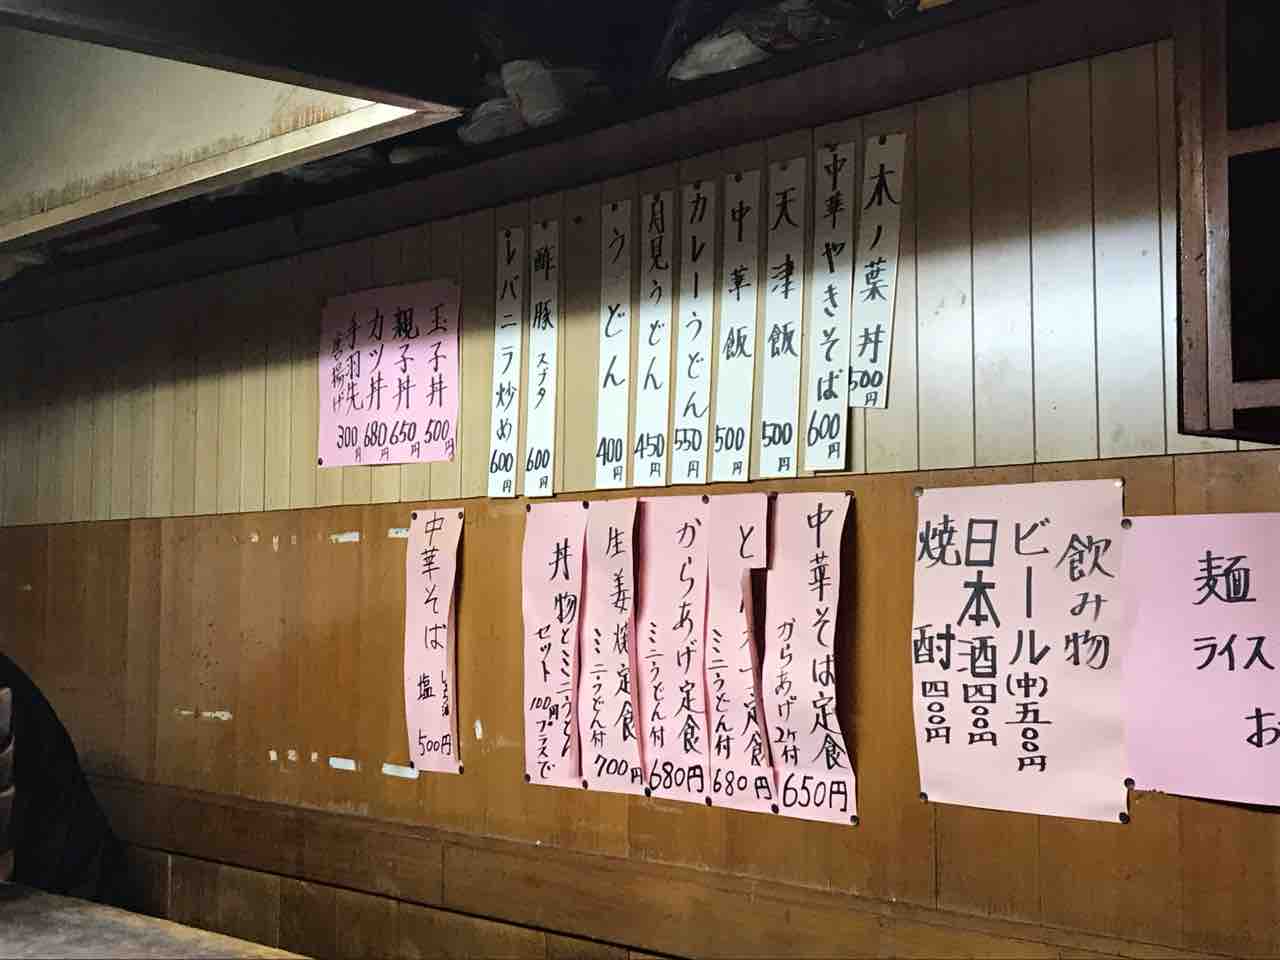 木ノ葉丼 500円
中華やきそば 600円
天津飯 500円
中華飯 500円
カレーうどん 550円
月見うどん 450円
うどん 400円
酢豚 スブタ 600円
レバニラ炒め 600円
玉子丼 500円
親子丼 650円
カツ丼 680円
手羽先
唐揚げ 300円
飲み物
ビール(中)五〇〇円
日本酒 四〇〇円
焼酎 四〇〇円
麺
ライス
お
中華そば定食
からあげ2ケ付
650円
と
定食
ミニうどん付
680円
からあげ定食
ミニうどん付
680円
生姜焼定食
ミニうどん付
700円
丼物とミニうどん
セット 100円プラスで
中華そば
塩
500円